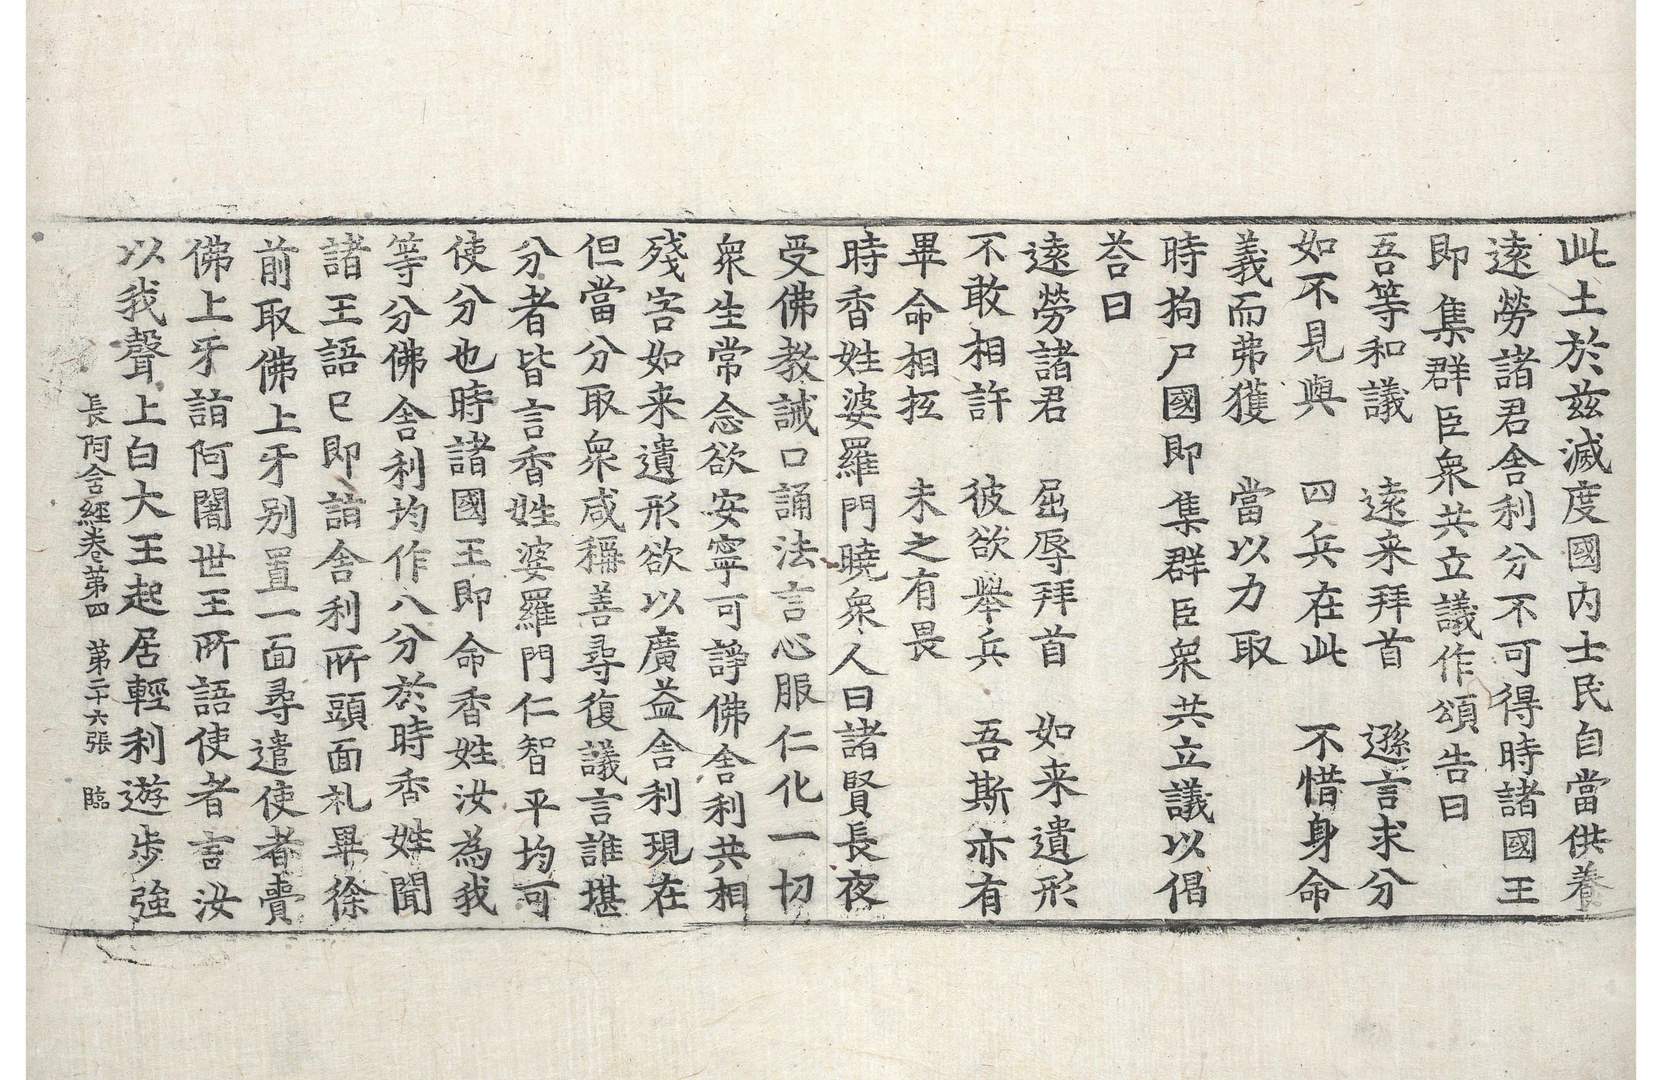 此土於茲滅度國內士民自當供養
遠勞諸君舍利分不可得時諸國王
即集群臣衆共立議作頌告曰
吾等和議　遠来拜首　遜言求分
如不見與　四兵在此　不惜身命
義而弗獲　當以力取
時拘尸國即集群臣衆共立議以偈
荅曰
遠勞諸君　屈辱拜首　如来遺形
不敢相許　彼欲舉兵　吾斯亦有
畢命相抂　未之有畏
時香姓婆羅門曉衆人曰諸賢長夜
受佛教誡口誦法言心服仁化一切
衆生常念欲安寧可諍佛舍利共相
殘害如来遺形欲以廣益舍利現在
但當分取衆咸稱善尋復議言誰堪
分者皆言香姓婆羅門仁智平均可
使分也時諸國王即命香姓汝為我
等分佛舍利均作八分於時香姓聞
諸王語已即詣舍利所頭面礼畢徐
前取佛上牙別置一面尋遣使者賷
佛上牙詣阿闍世王所語使者言汝
以我聲上白大王起居輕利遊步強
長阿含經卷第四　第二十六張　臨